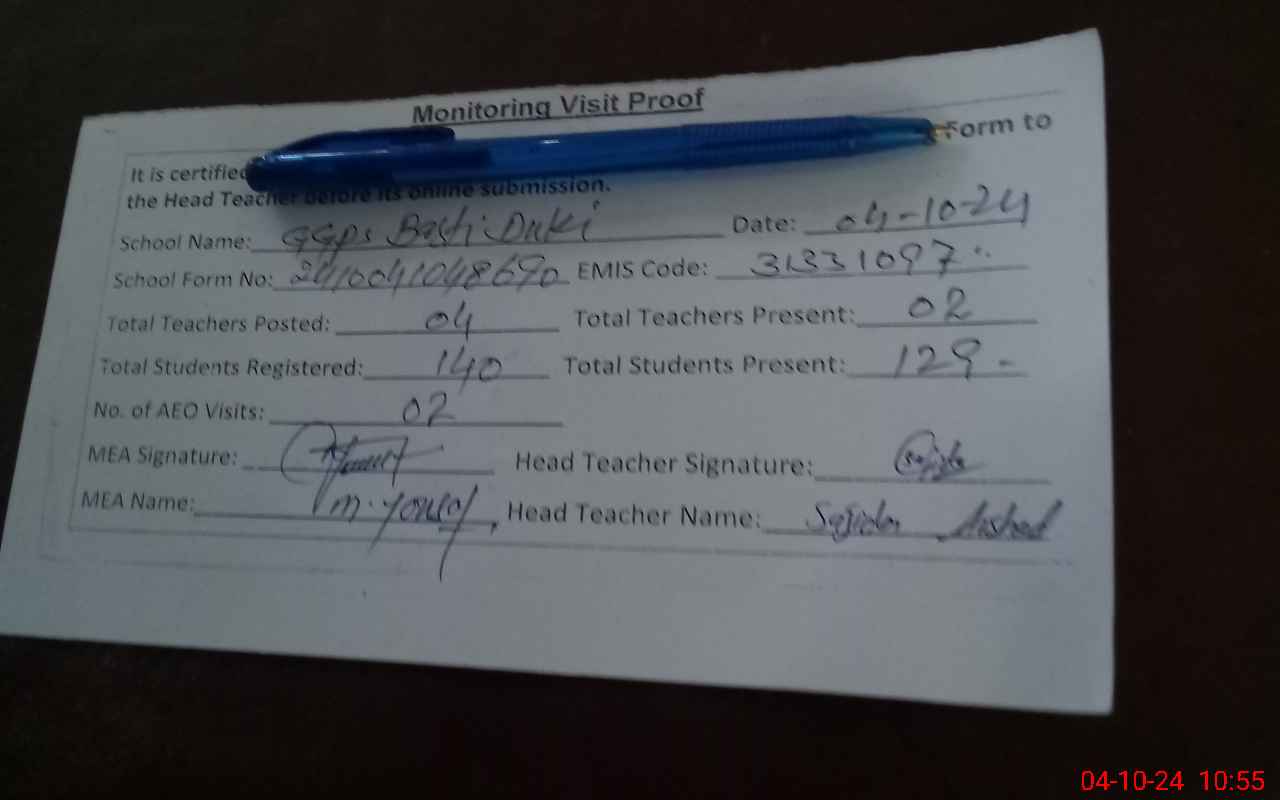 Monitoring Visit Proof
It is certified Form to
the Head Teacher before its online submission.
School Name: GGPS Basti Duki Date: 04-10-24
School Form No: 2410041048690 EMIS Code: 31331097
Total Teachers Posted: 04 Total Teachers Present: 02
Total Students Registered: 140 Total Students Present: 129-
No. of AEO Visits: 02
MEA Signature: Head Teacher Signature:
MEA Name: M. Yousaf, Head Teacher Name: Sajida Arshad
04-10-24 10:55